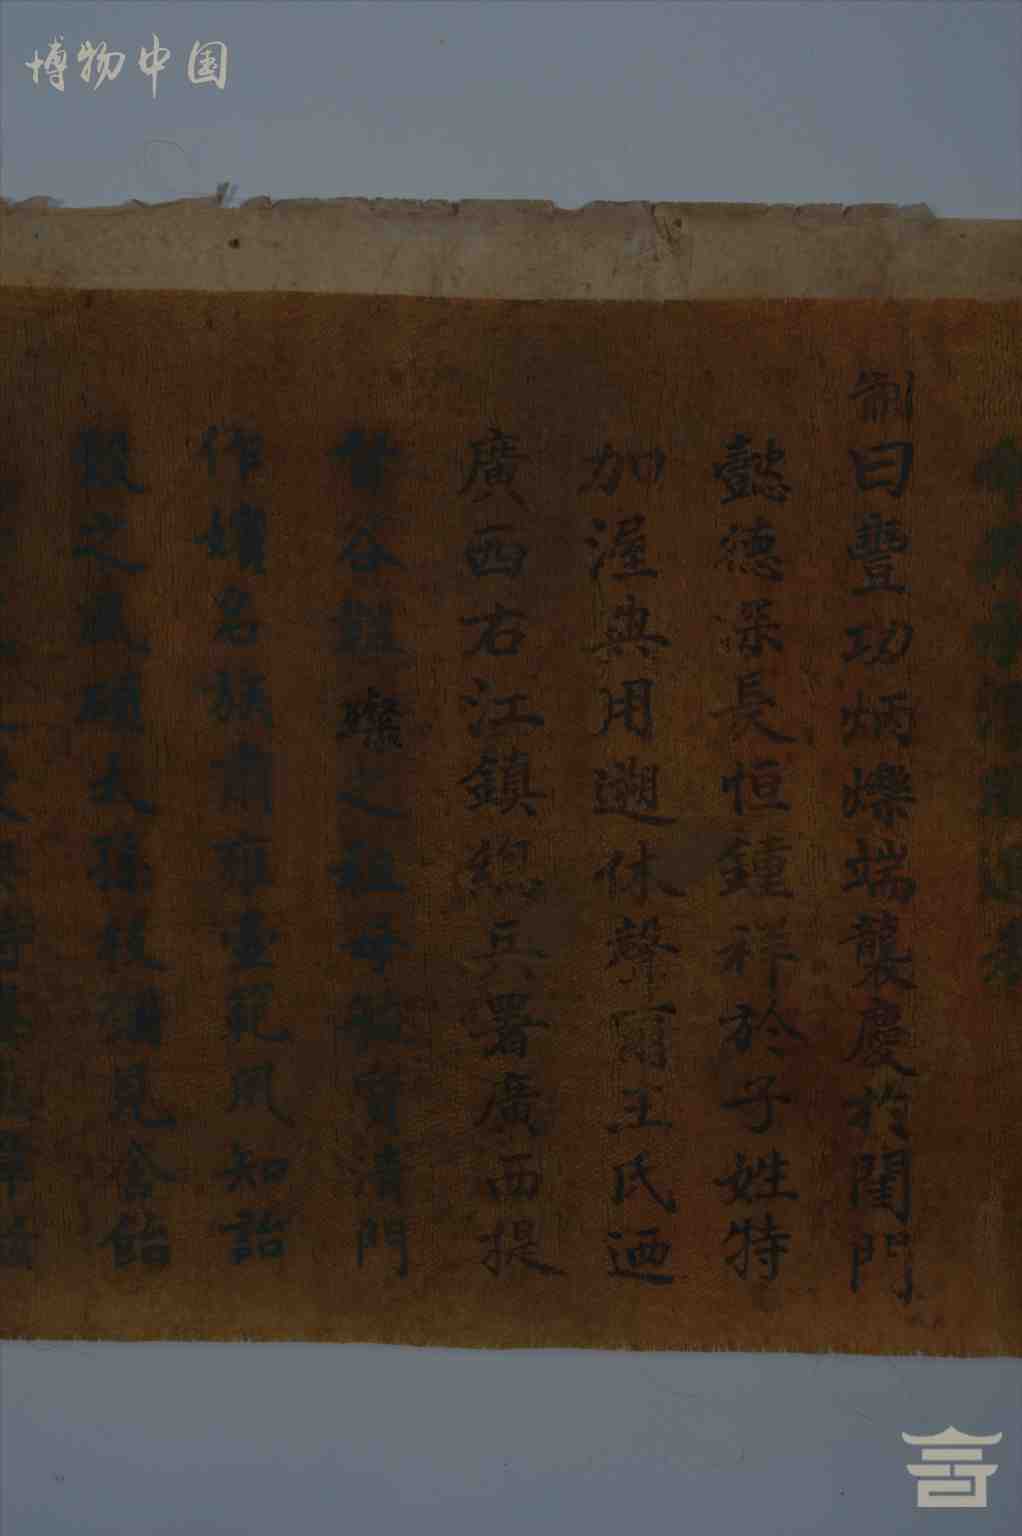 博物中国
制曰豐功炳爍端襲慶於閨門
懿德深長恒鍾祥於子姓特
加渥典用遡休聲爾王氏迺
廣西右江鎮總兵署廣西提
督谷璨之祖母毓質清門
作嬪名族肅雍壼範夙知詒
穀之風碩大孫枝彌見含飴